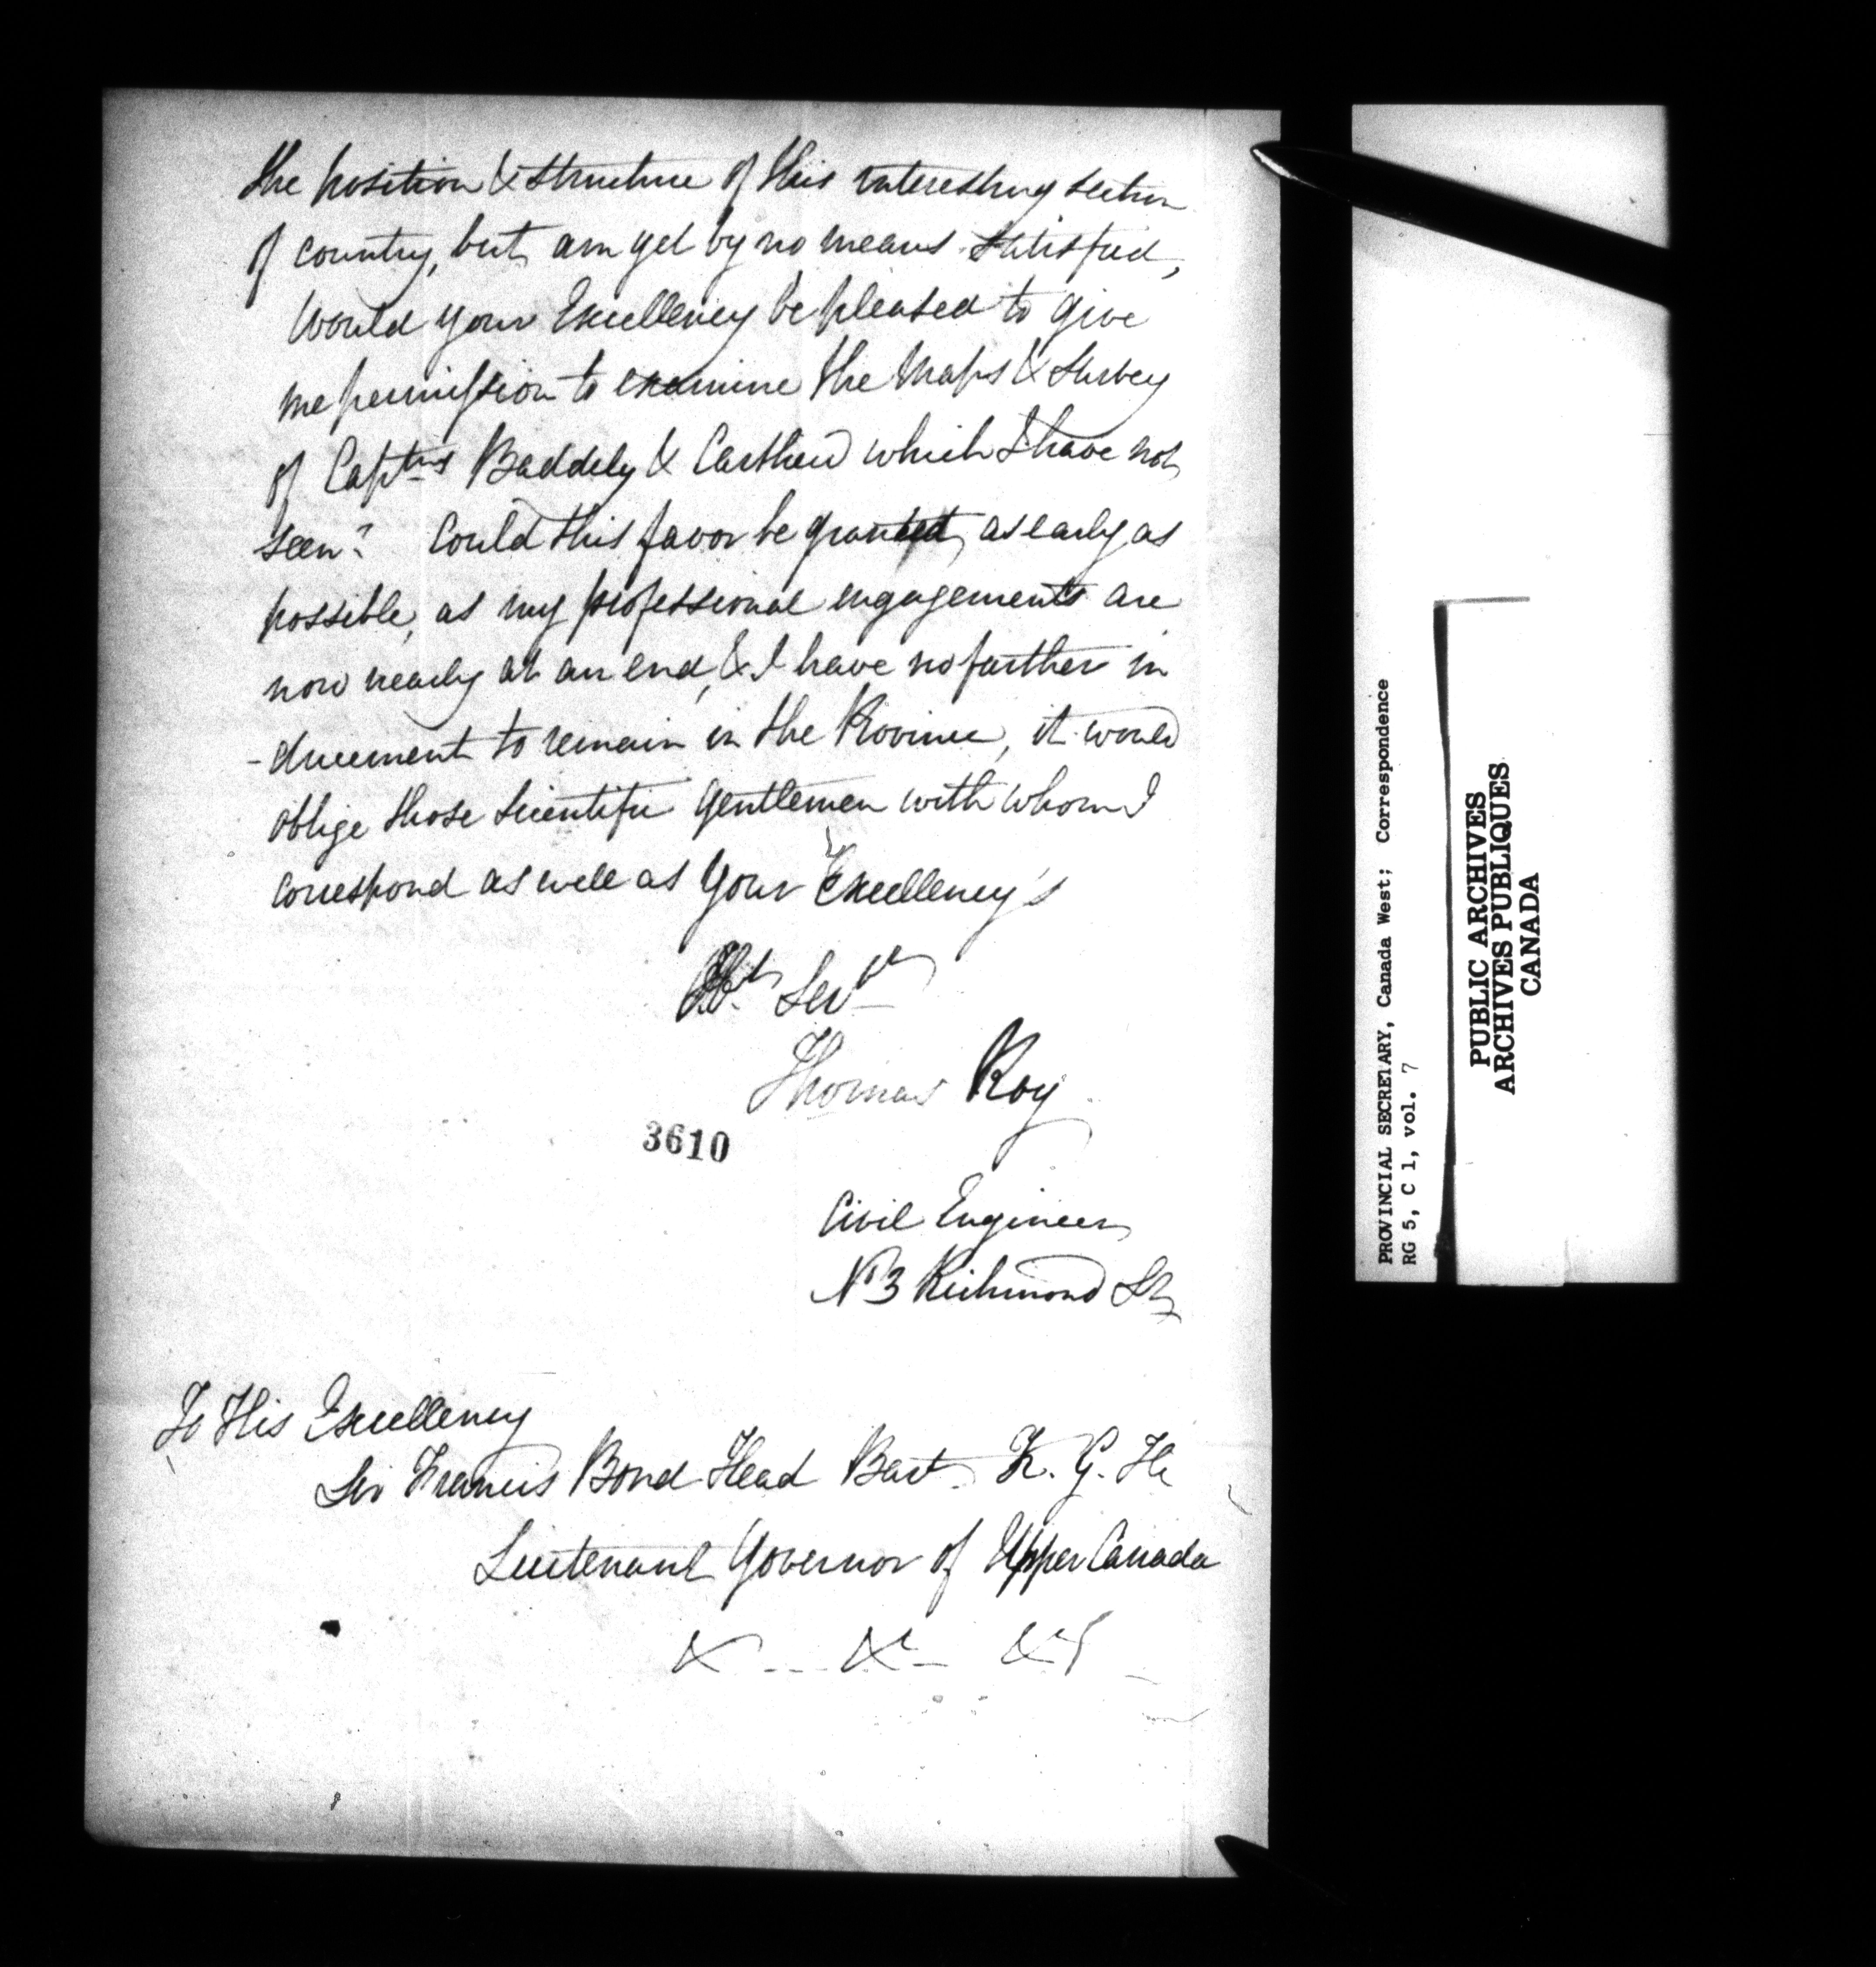 the position & structure of this interesting section
of country, but am yet by no means satisfied,
Would your Excellency be pleased to give
me permission to examine the Maps & Survey
of Captns Baddely & Carthew which I have not
seen? Could this favor be granted, as early as
possible, as my professional engagements are
now nearly at an end, & I have no further in
-ducement to remain in the Province, it would
oblige those scientific gentlemen with whom I
correspond as well as Your Excellency's
Ht Servt
Thomas Roy
3610
Civil Engineer
No 3 Richmond St
To His Excellency
Sir Francis Bond Head Bart K. G. H
Lieutenant Governor of Upper Canada
& &c &c
PROVINCIAL SECRETARY, Canada West; Correspondence
RG 5, C 1, vol. 7
PUBLIC ARCHIVES
ARCHIVES PUBLIQUES
CANADA